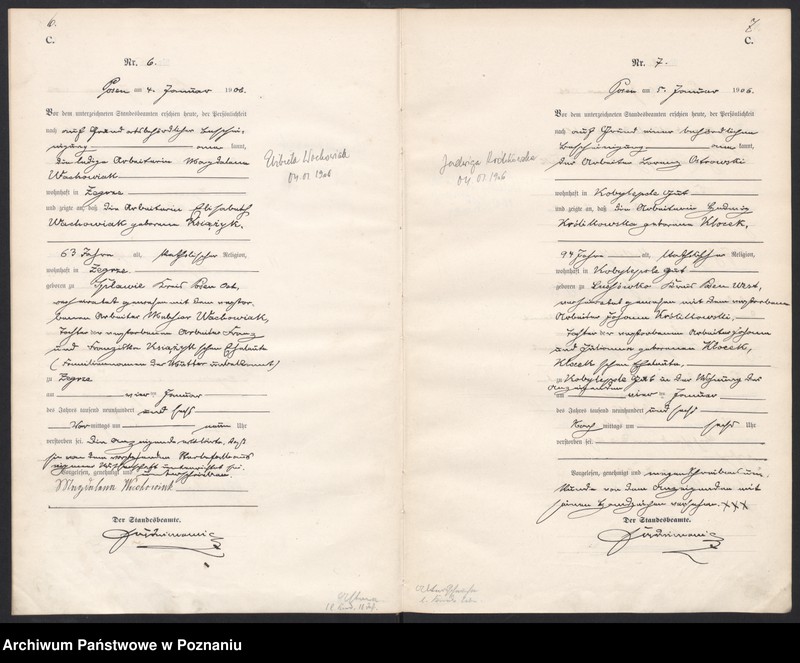 6.
C.
Nr. 6.
Posen am 4. Januar 1906.
Vor dem unterzeichneten Standesbeamten erschien heute, der Persönlichkeit
nach auf Grund ortsbehördlicher Beschei-
nigung kannt,
die ledige Arbeiterin Magdalena
Wachowiak
wohnhaft in Zegrze
und zeigte an, daß die Arbeiterin Elisabeth
Wachowiak geborene Książyk,
63 Jahre alt, katholischer Religion,
wohnhaft in Zegrze
geboren zu Spławie Kreis Posen Ost,
verheiratet gewesen mit dem verstor-
benen Arbeiter Melchior Wachowiak,
Tochter der verstorbenen Arbeiter Franz
und Franziska Książyk'schen Eheleute
(Familiennamen der Mutter unbekannt)
zu Zegrze
am vier Januar
des Jahres tausend neunhundert und sechs
Vor mittags um neun Uhr
verstorben sei. Die Anzeigende erklärte, daß
sie von dem vorstehenden Sterbefall aus
eigener Wissenschaft unterrichtet sei.
Vorgelesen, genehmigt und unterschrieben.
Magdalena Wachowiak
Der Standesbeamte.
Elżbieta Wachowiak
04.01.1906
7
C.
Nr. 7.
Posen am 5. Januar 1906.
Vor dem unterzeichneten Standesbeamten erschien heute, der Persönlichkeit
nach auf Grund einer behördlichen
Bescheinigung kannt,
der Arbeiter Lorenz Ostrowski
wohnhaft in Kobylepole Gut
und zeigte an, daß die Arbeiterin Hedwig
Królikowska geborene Klocek,
94 Jahre alt, katholischer Religion,
wohnhaft in Kobylepole Gut
geboren zu Kreis Posen West,
verheiratet gewesen mit dem verstorbenen
Arbeiter Johann Królikowski,
Tochter der verstorbenen Arbeiter Johann
und geborenen Klocek,
Klocek'schen Eheleute,
zu Kobylepole Gut in der Wohnung des
Anzeigenden
am vier Januar
des Jahres tausend neunhundert und sechs
Nach mittags um sechs Uhr
verstorben sei.
Vorgelesen, genehmigt und wegen Schreibensun-
kunde von dem Anzeigenden mit
seinem Handzeichen versehen. XXX
Der Standesbeamte.
Jadwiga Królikowska
04.01.1906
Archiwum Państwowe w Poznaniu